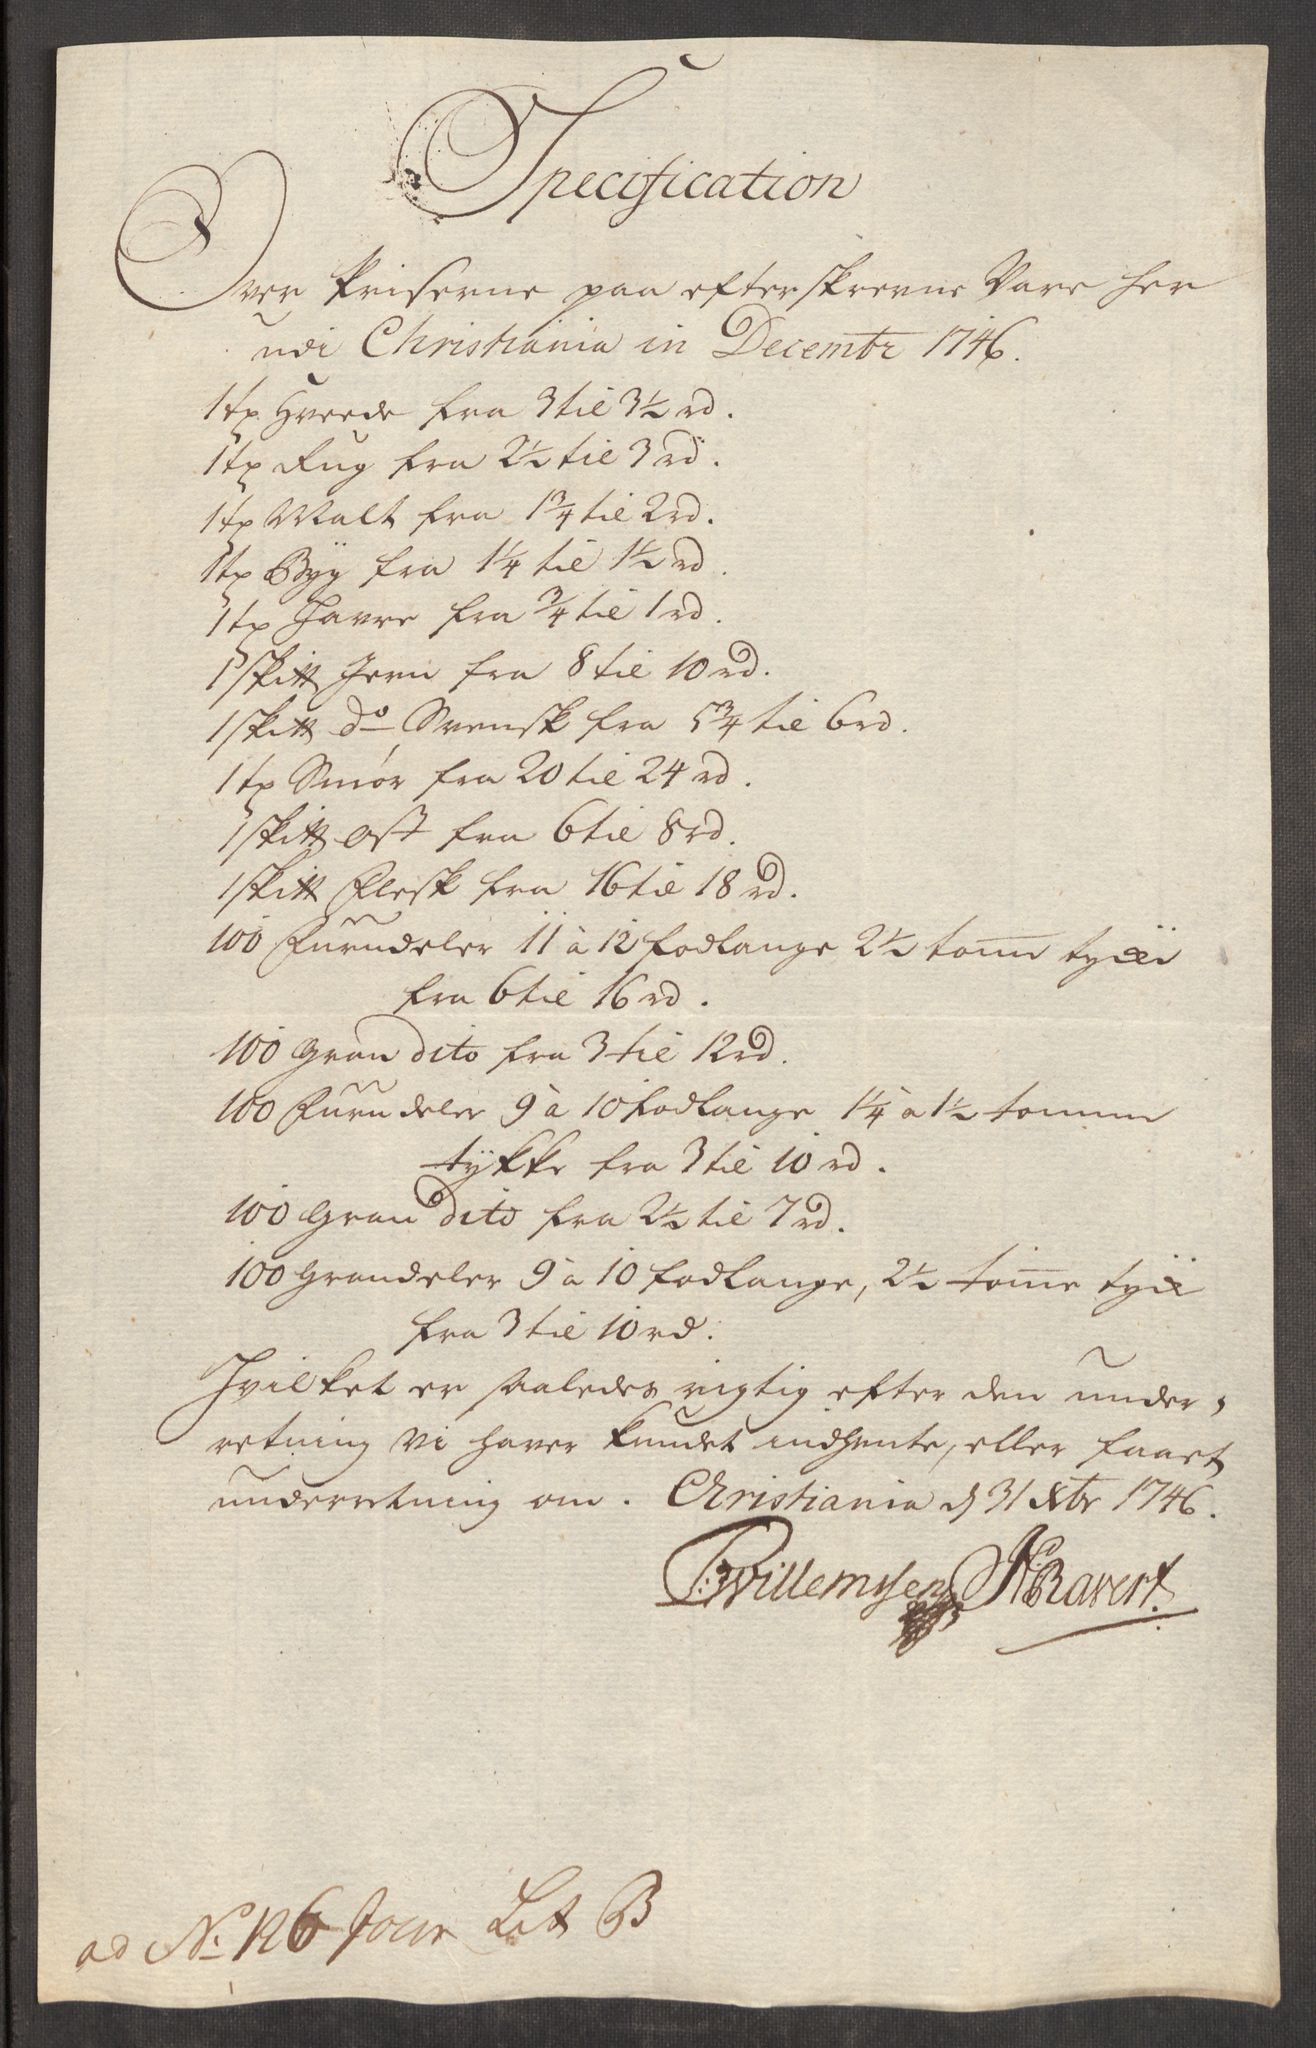 Specification
Over Priserne paa efterskrevne Vare her
udi Christiania in Decembr 1746.
1 tø Hvede fra 3 til 3½ rd.
1 tø Rug fra 2½ til 3 rd.
1 tø Malt fra 1¾ til 2 rd.
1 tø Byg fra 1¼ til 1½ rd.
1 tø Havre fra ¾ til 1 rd.
1 sk℔ Jern fra 8 til 10 rd.
1 sk℔ do Svensk fra 5¾ til 6 rd.
1 tø Smør fra 20 til 24 rd.
1 sk℔ Ost fra 6 til 8 rd.
1 sk℔ Flesk fra 16 til 18 rd.
100 Furudeler 11 à 12 fodlange 2½ tom̅ tyke
fra 6 til 16 rd.
100 Gran dito fra 3 til 12 rd.
100 Furu deler 9 à 10 fodlange 1¼ a 1½ tomme
tykke fra 3 til 10 rd.
100 Gran dito fra 2½ til 7 rd.
100 Grandeler 9 a 10 fodlange, 2½ tom̅e tyk
fra 3 til 10 rd.
Hvilket er saaledes rigtig efter den under,
retning vi haver kundet indhente, eller faaet
underretning om. Christiania d 31 Xbr 1746.
Willemsen Ravert.
ad No. 126 Jour Lit B